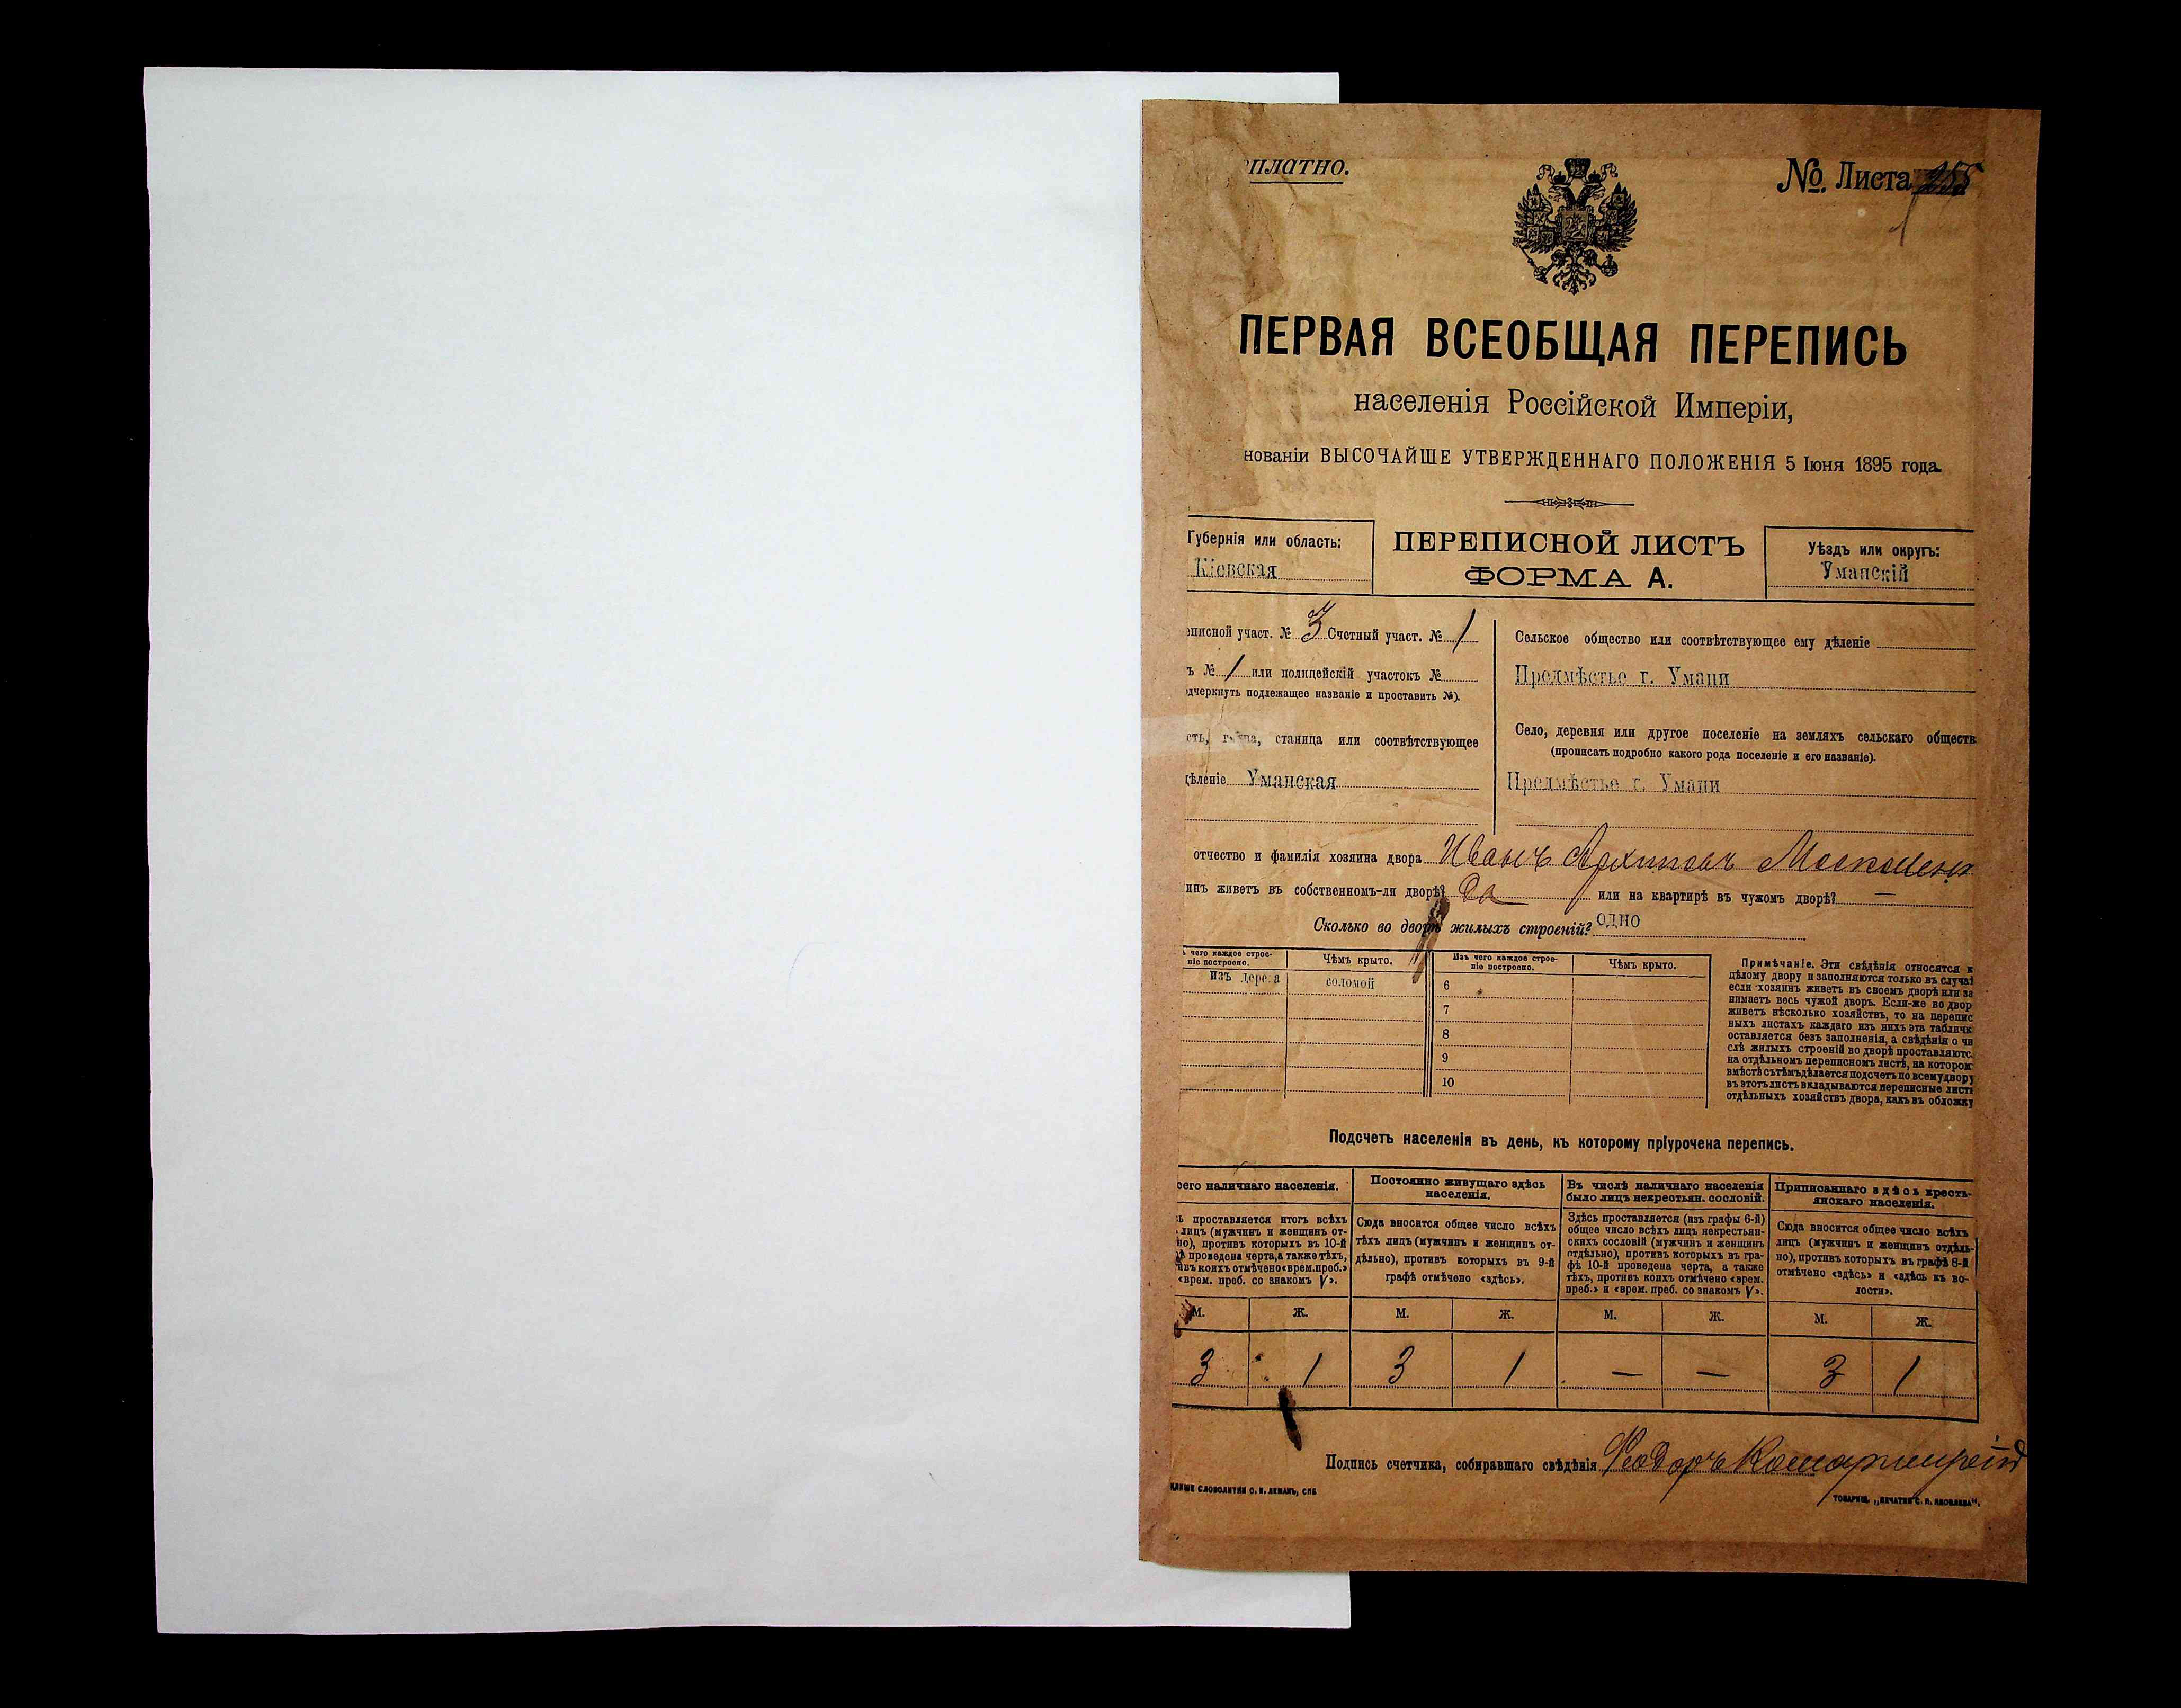 платно.
№ Листа
ПЕРВАЯ ВСЕОБЩАЯ ПЕРЕПИСЬ
населенія Россійской Имперіи,
нованіи ВЫСОЧАЙШЕ УТВЕРЖДЕННАГО ПОЛОЖЕНІЯ 5 Іюня 1895 года.
Губернія или область:
Кіевская
ПЕРЕПИСНОЙ ЛИСТЪ
ФОРМА А.
Уѣздъ или округъ:
Уманскій
еписной участ. № 3 Счетный участ. № 1
ъ № 1 или полицейскій участокъ №
дчеркнуть подлежащее названіе и проставить №).
сть, гмина, станица или соотвѣтствующее
дѣленіе Уманская
Сельское общество или соотвѣтствующее ему дѣленіе
Предмѣстье г. Умани
Село, деревня или другое поселеніе на земляхъ сельскаго обществ
(прописать подробно какого рода поселеніе и его названіе).
Предмѣстье г. Умани
отчество и фамилія хозяина двора Иванъ Архиповъ
инъ живетъ въ собственномъ-ли дворѣ? Да или на квартирѣ въ чужомъ дворѣ? —
Сколько во дворѣ жилыхъ строеній? одно
ъ чего каждое строе-
ніе построено.
Чѣмъ крыто.
Изъ чего каждое строе-
ніе построено.
Чѣмъ крыто.
изъ дерева
соломой
6
7
8
9
10
Примѣчаніе. Эти свѣдѣнія относятся к
цѣлому двору и заполняются только въ случаѣ
если хозяинъ живетъ въ своемъ дворѣ или за
нимаетъ весь чужой дворъ. Если-же во двор
живетъ нѣсколько хозяйствъ, то на перепис
ныхъ листахъ каждаго изъ нихъ эта табличк
оставляется безъ заполненія, а свѣдѣнія о чи
слѣ жилыхъ строеній во дворѣ проставляютс
на отдѣльномъ переписномъ листѣ, на котором
вмѣстѣ съ тѣмъ дѣлается подсчетъ по всему двору
въ этотъ листъ вкладываются переписные листы
отдѣльныхъ хозяйствъ двора, какъ въ обложку
Подсчетъ населенія въ день, къ которому пріурочена перепись.
сего наличнаго населенія.
Постоянно живущаго здѣсь
населенія.
Въ числѣ наличнаго населенія
было лицъ некрестьян. сословій.
Приписаннаго здѣсь кресть-
янскаго населенія.
ь проставляется итогъ всѣхъ
лицъ (мужчинъ и женщинъ от-
но), противъ которыхъ въ 10-й
ѣ проведена черта, а также тѣхъ,
ивъ коихъ отмѣчено «врем. преб.»
«врем. преб. со знакомъ V».
Сюда вносится общее число всѣхъ
тѣхъ лицъ (мужчинъ и женщинъ от-
дѣльно), противъ которыхъ въ 9-й
графѣ отмѣчено «здѣсь».
Здѣсь проставляется (изъ графы 6-й)
общее число всѣхъ лицъ некрестьян-
скихъ сословій (мужчинъ и женщинъ
отдѣльно), противъ которыхъ въ гра-
фѣ 10-й проведена черта, а также
тѣхъ, противъ коихъ отмѣчено «врем.
преб.» и «врем. преб. со знакомъ V».
Сюда вносится общее число всѣхъ
лицъ (мужчинъ и женщинъ отдѣль-
но), противъ которыхъ въ графѣ 8-й
отмѣчено «здѣсь» и «здѣсь къ во-
лости».
М. Ж. М. Ж. М. Ж. М. Ж.
3 1 3 1 — — 3 1
Подпись счетчика, собиравшаго свѣдѣнія Феодоръ
СЛОВОЛИТНИ О. И. ЛЕМАНЪ, СПБ
ТОВАРИЩ. „ПЕЧАТНЯ С. П. ЯКОВЛЕВА".